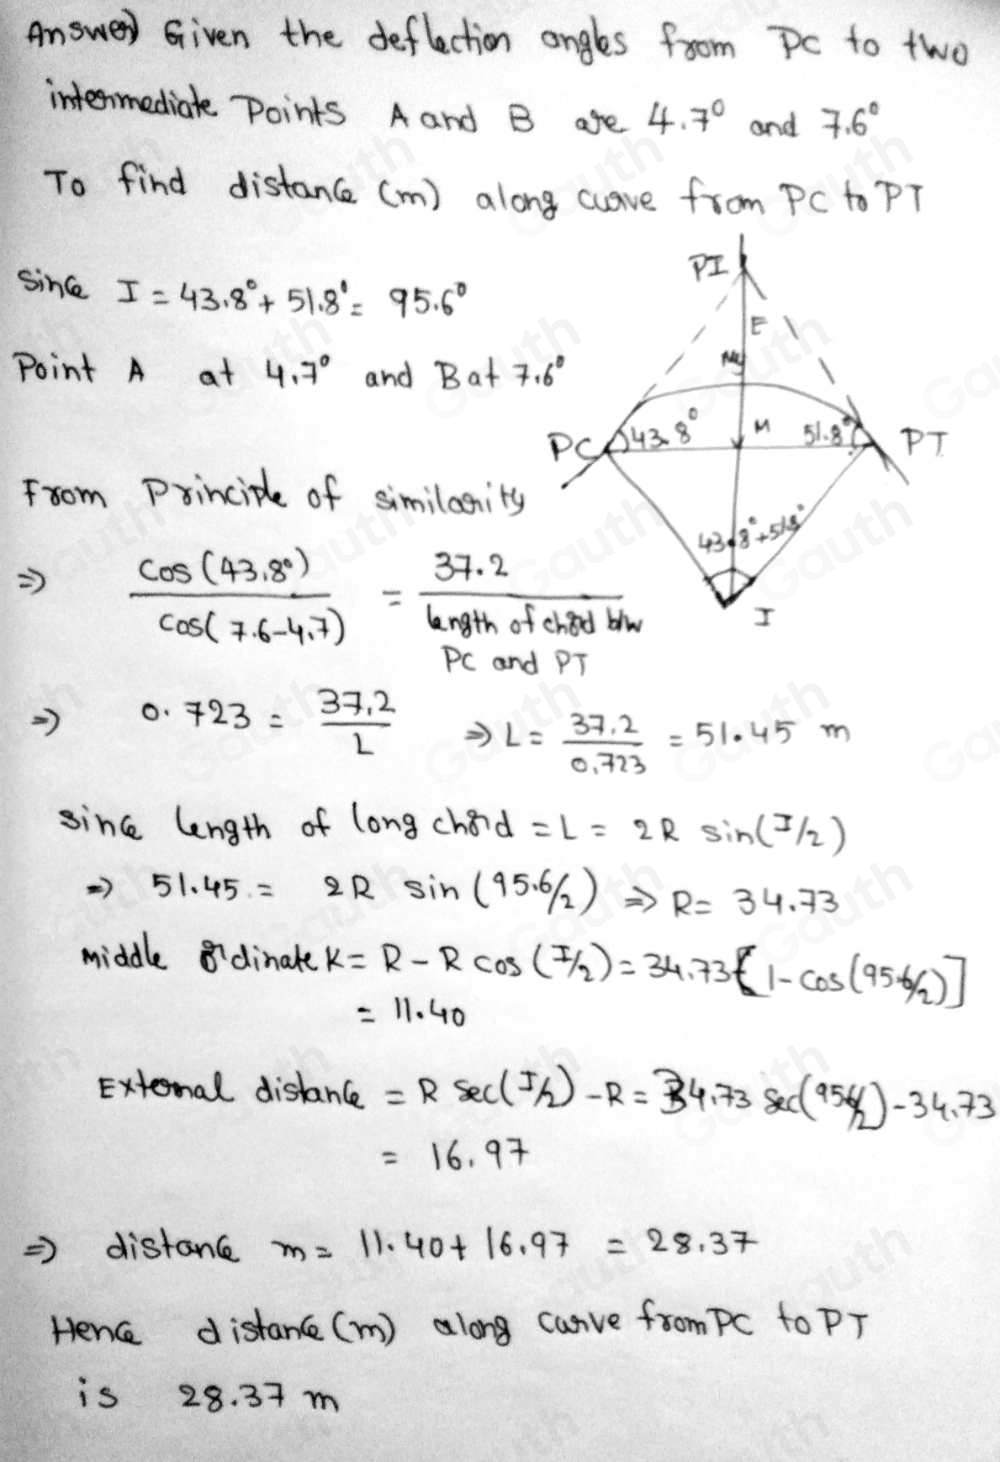 Answer) Given the deflection angles from PC to two
intermediate Points A and B are 4.7° and 7.6°
To find distance (m) along curve from PC to PT
Since I = 43.8° + 51.8° = 95.6°
Point A at 4.7° and B at 7.6°
PI
E
M
PC 43.8° 51.8° PT
43.8° + 51.8°
I
From Principle of similarity
⇒ cos(43.8°) / cos(7.6-4.7) = 37.2 / length of chord b/w PC and PT
⇒ 0.723 = 37.2 / L ⇒ L = 37.2 / 0.723 = 51.45 m
Since length of long chord = L = 2R sin(I/2)
⇒ 51.45 = 2R sin(95.6/2) ⇒ R = 34.73
Middle ordinate K = R - R cos(I/2) = 34.73[1 - cos(95.6/2)]
= 11.40
External distance = R sec(I/2) - R = 34.73 sec(95.6/2) - 34.73
= 16.97
⇒ distance m = 11.40 + 16.97 = 28.37
Hence distance (m) along curve from PC to PT
is 28.37 m